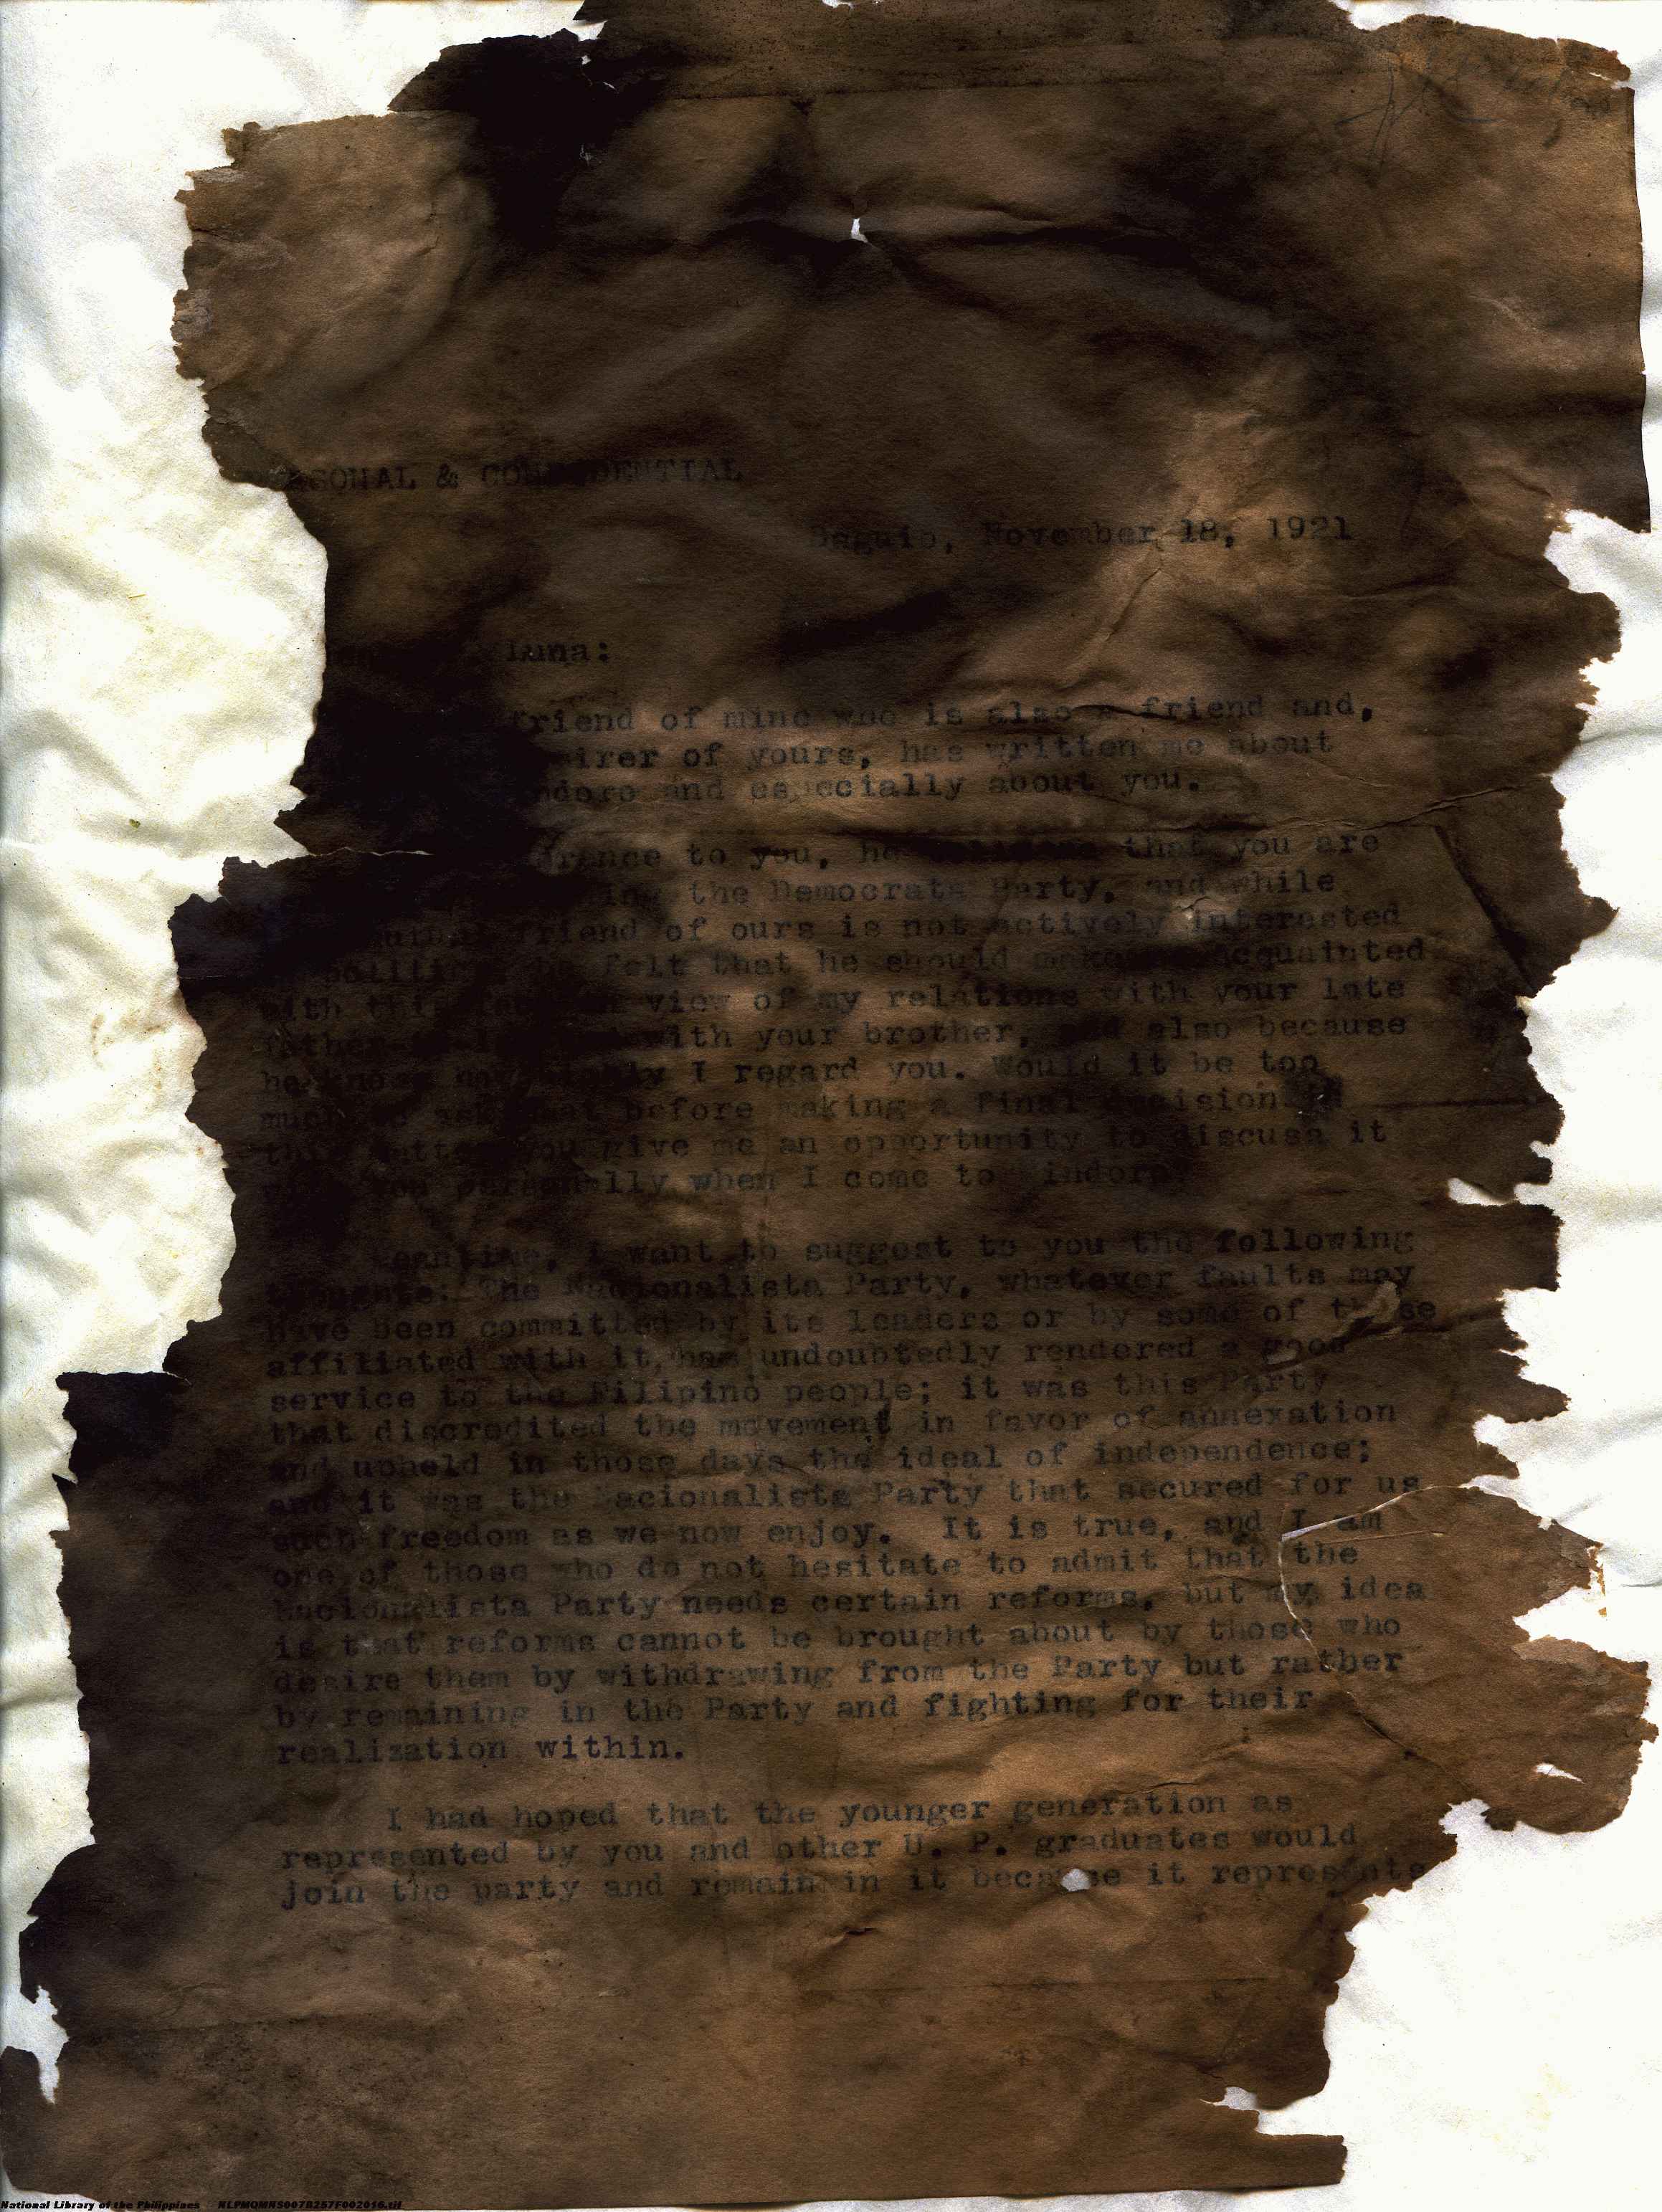 RSONAL & CONFIDENTIAL
Baguio, November 18, 1921
Luna:
friend of mine who is also a friend and,
mirer of yours, has written me about
ndoro and especially about you.
erence to you, he that you are
ing the Democrata Party, and while
friend of ours is not actively interested
politics he felt that he should make acquainted
with this view of my relations with your late
father with your brother, and also because
he knows how I regard you. Would it be too
much to ask that before making a final decision in
this matter you give me an opportunity to discuss it
with you personally when I come to Mindoro.
Meantime, I want to suggest to you the following
thoughts: The Nacionalista Party, whatever faults may
have been committed by its leaders or by some of those
affiliated with it, has undoubtedly rendered a good
service to the Filipino people; it was this Party
that discredited the movement in favor of annexation
and upheld in those days the ideal of independence;
and it was the Nacionalista Party that secured for us
such freedom as we now enjoy. It is true, and I am
one of those who do not hesitate to admit that the
Nacionalista Party needs certain reforms, but my idea
is that reforms cannot be brought about by those who
desire them by withdrawing from the Party but rather
by remaining in the Party and fighting for their
realization within.
I had hoped that the younger generation as
represented by you and other U. P. graduates would
join the party and remain in it because it represents
National Library of the Philippines NLPMQMNS007B257F002016.tif